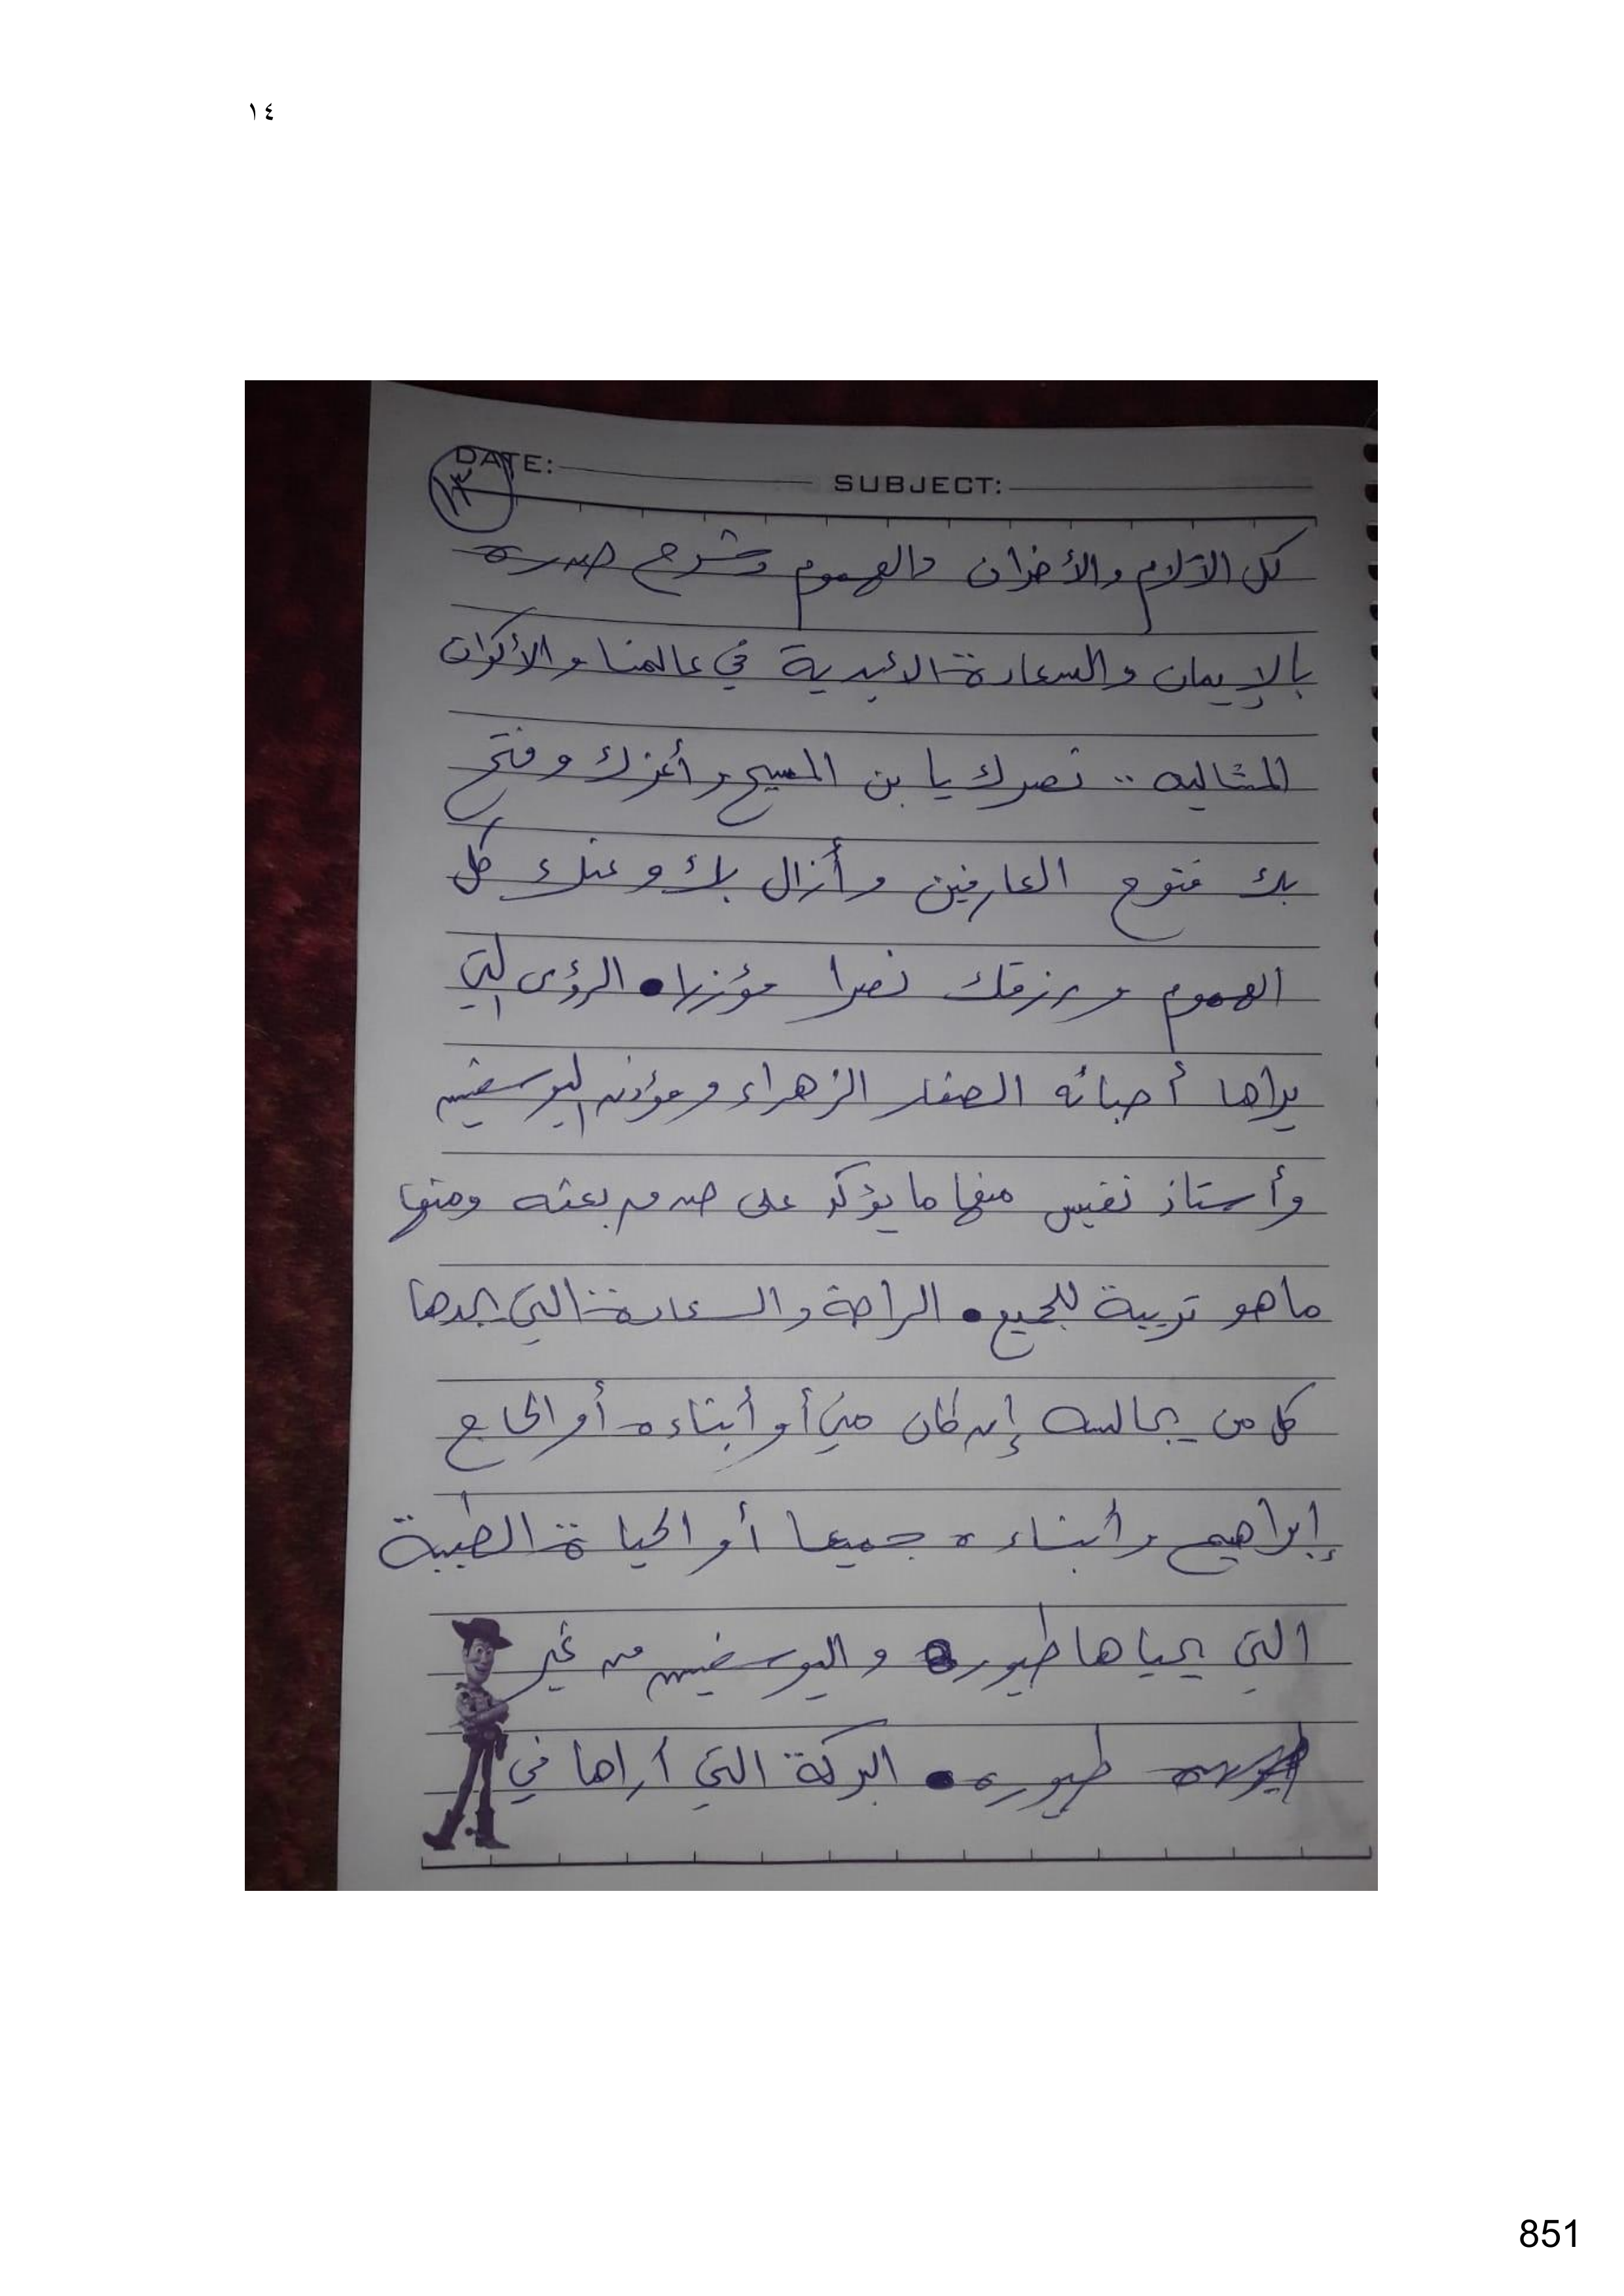 ١٤
DATE:
SUBJECT:
١٣
كل الآلام والأحزان والهموم وشرح صدره
بالإيمان والسعادة الأبدية في عالمنا والأكوان
المثاليه .. نصرك يا بن المسيح وأعزك وفتح
بك فتوح العارفين وأزال بك وعنك كل
الهموم ويرزقك نصرا مؤزرا • الرؤى التي
يراها أحبائه الصغار الزهراء ومؤذن اليوسفيين
وأستاذ نفيس منها ما يؤكد على صدق بعثه ومنها
ما هو تربية للجميع • الراحة والسعادة التي يجدها
كل من يجالسه إن كان مني أو أبناءه أو الحاج
إبراهيم وأبناءه جميعا أو الحياة الطيبة
التي يحياها طيوره واليوسفيين من غير
طيوره • البركة التي أراها في
851